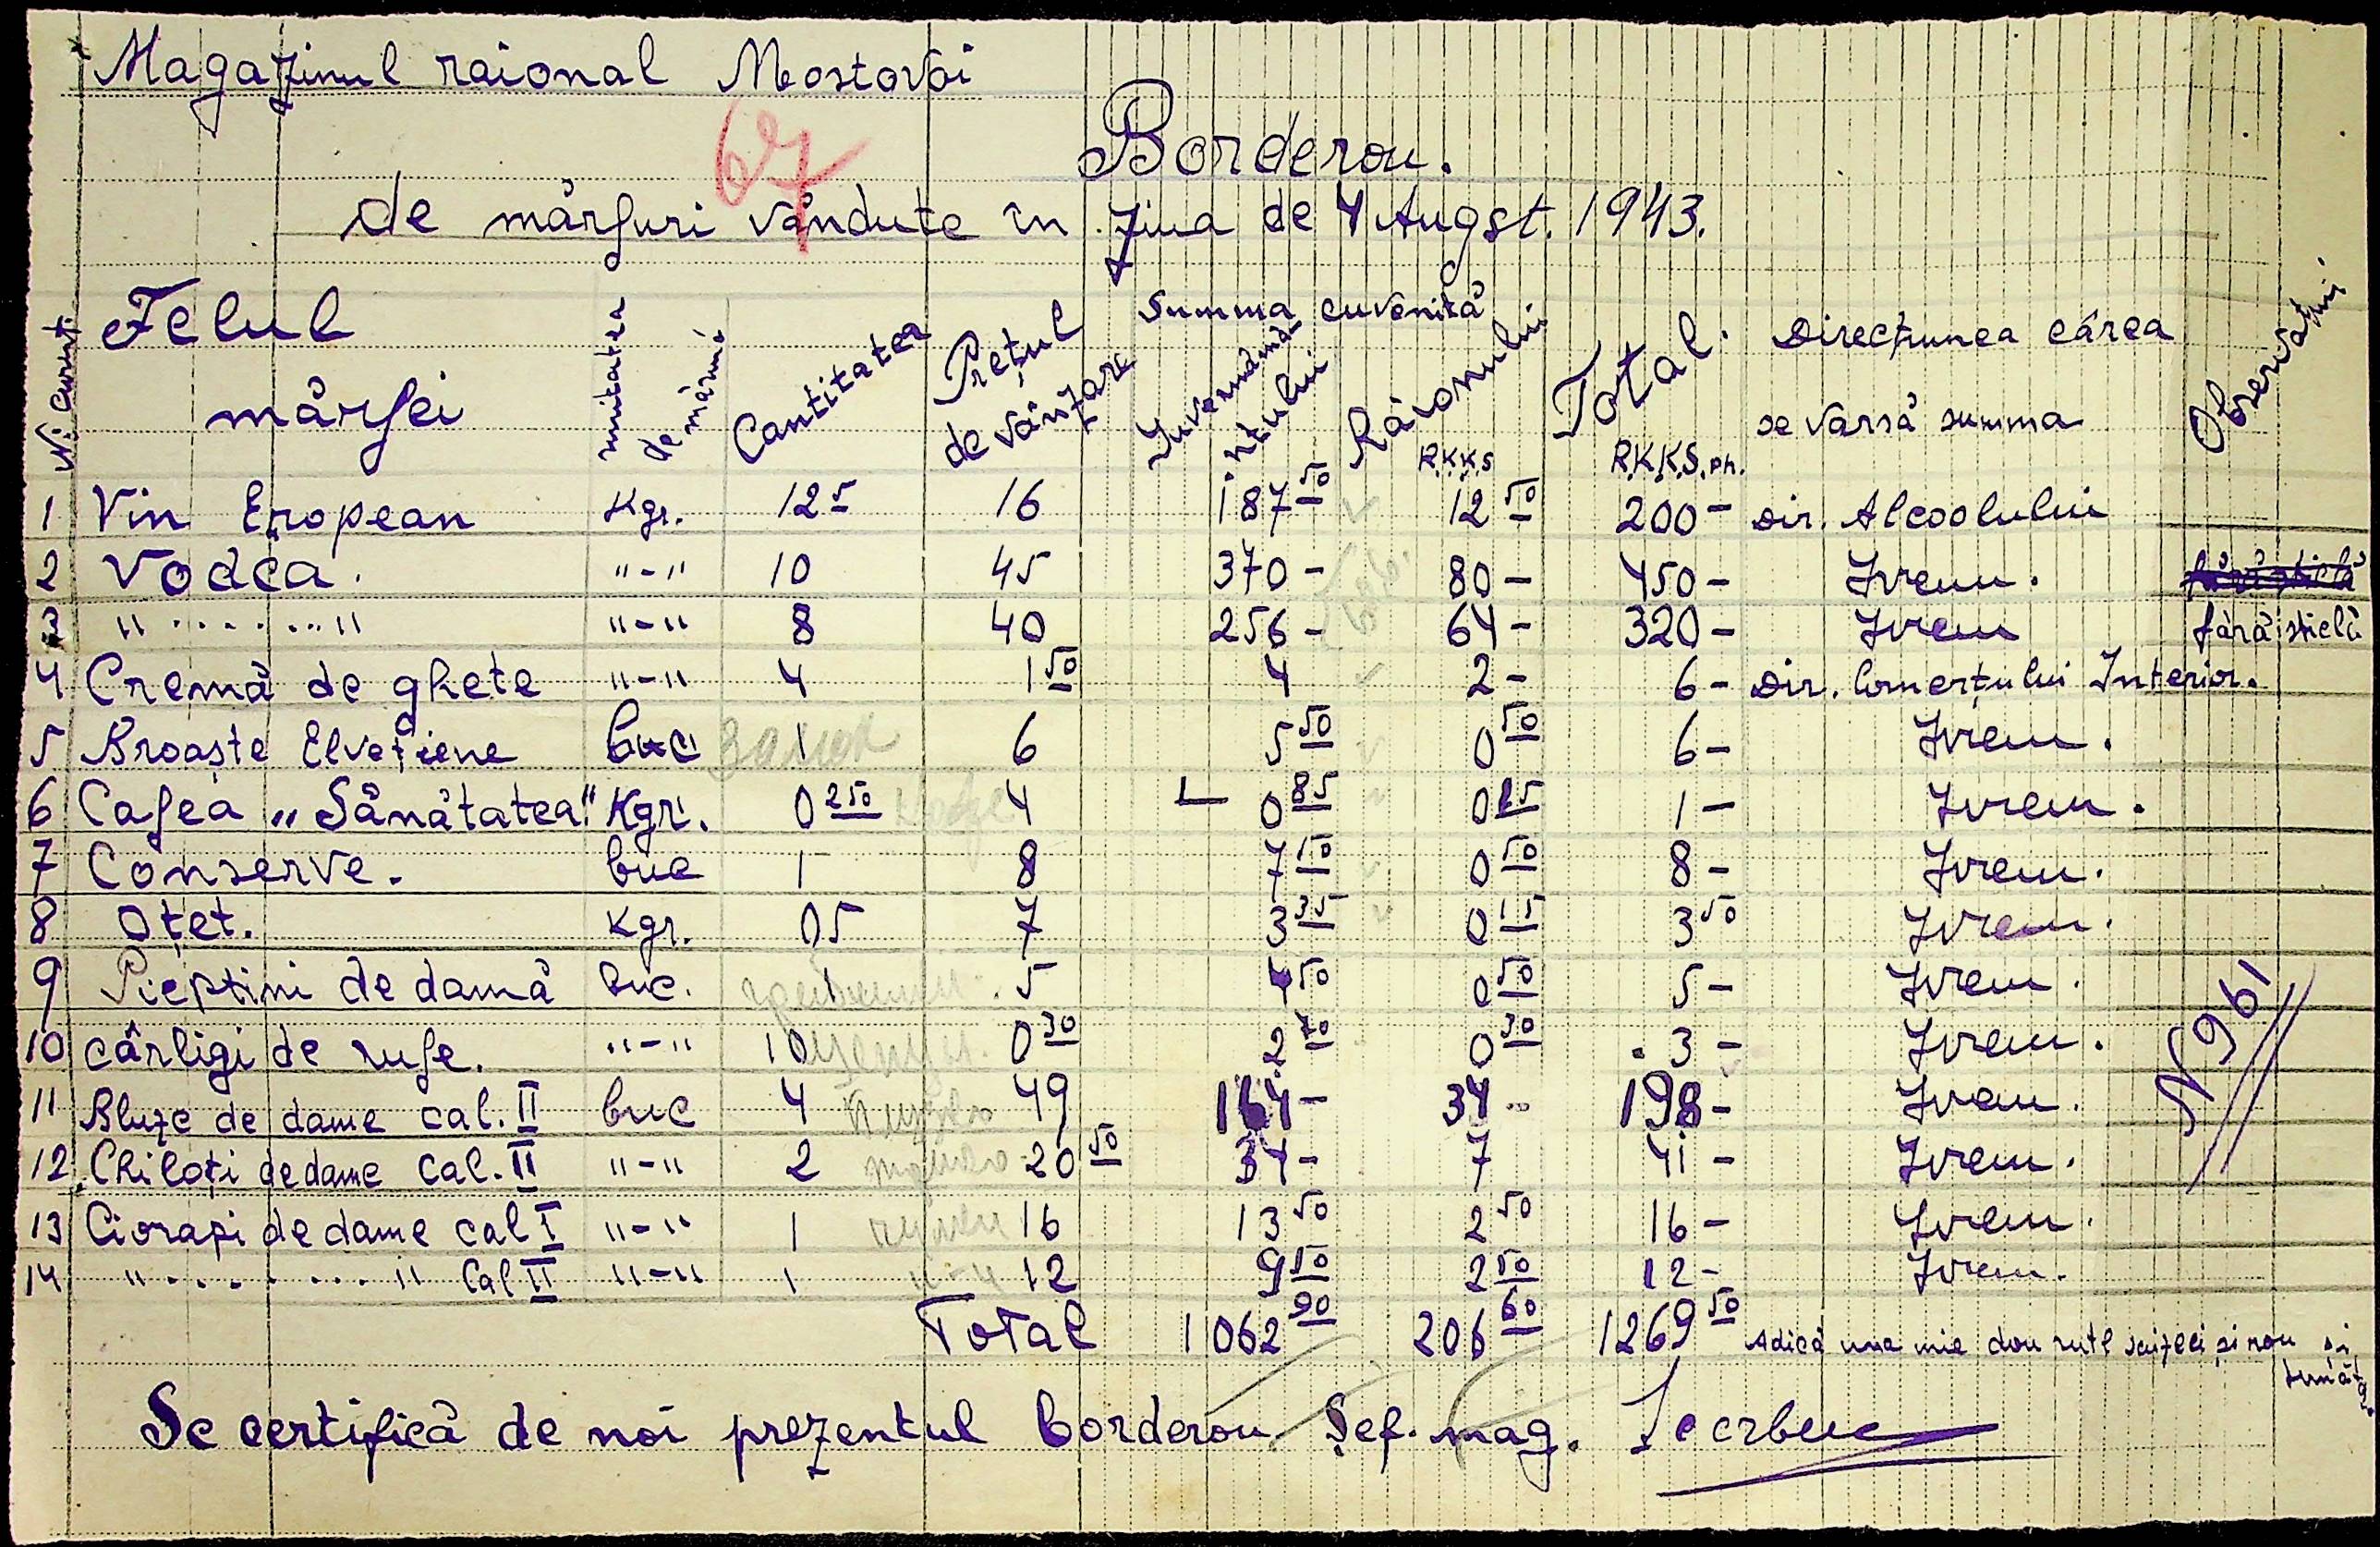 Magazinul raional Mostovoi
67
Borderou.
de mărfuri vândute în ziua de 4 Augst. 1943.
Nr. curent. Felul mărfei unitatea de mărimi Cantitatea Prețul de vânzare Summa cuvenită Guvernământului Raionului R.K.K.S Total. R.K.K.S. ph. Direcțiunea cărea se varsă summa Observațiuni
1 Vin Eropean Kgr. 12 5 16 187 50 12 50 200 - Dir. Alcoolului
2 Vodca. "-" 10 45 370 - 80 - 450 - Ivrem.
3 " ....... " "-" 8 40 256 - 64 - 320 - Ivrem fără sticlă
4 Cremă de ghete "-" 4 1 50 4 2 - 6 - Dir. Comerțului Interior.
5 Broaște Elvețiene buc 1 замок 6 5 50 0 50 6 - Ivrem.
6 Cafea „Sănătatea" Kgr. 0 250 4 0 85 0 15 1 - Ivrem.
7 Conserve. buc 1 8 7 50 0 50 8 - Ivrem.
8 Oțet. Kgr. 05 7 3 35 0 15 3 50 Ivrem.
9 Pieptini de damă buc. 1 5 4 50 0 50 5 - Ivrem.
10 cârligi de rufe. "-" 10 0 30 2 70 0 30 3 - Ivrem.
11 Bluze de dame cal. II buc 4 49 164 - 34 - 198 - Ivrem.
12 Chiloți de dame cal. II "-" 2 20 50 34 - 7 41 - Ivrem.
13 Ciorapi de dame cal I "-" 1 16 13 50 2 50 16 - Ivrem.
14 " ........ " Cal II "-" 1 "-" 12 9 50 2 50 12 - Ivrem.
N 961
Total 1062 90 206 60 1269 50 Adică una mie dou sute șaizeci și nou și jumătă.
Se certifică de noi prezentul borderou. Șef. mag.